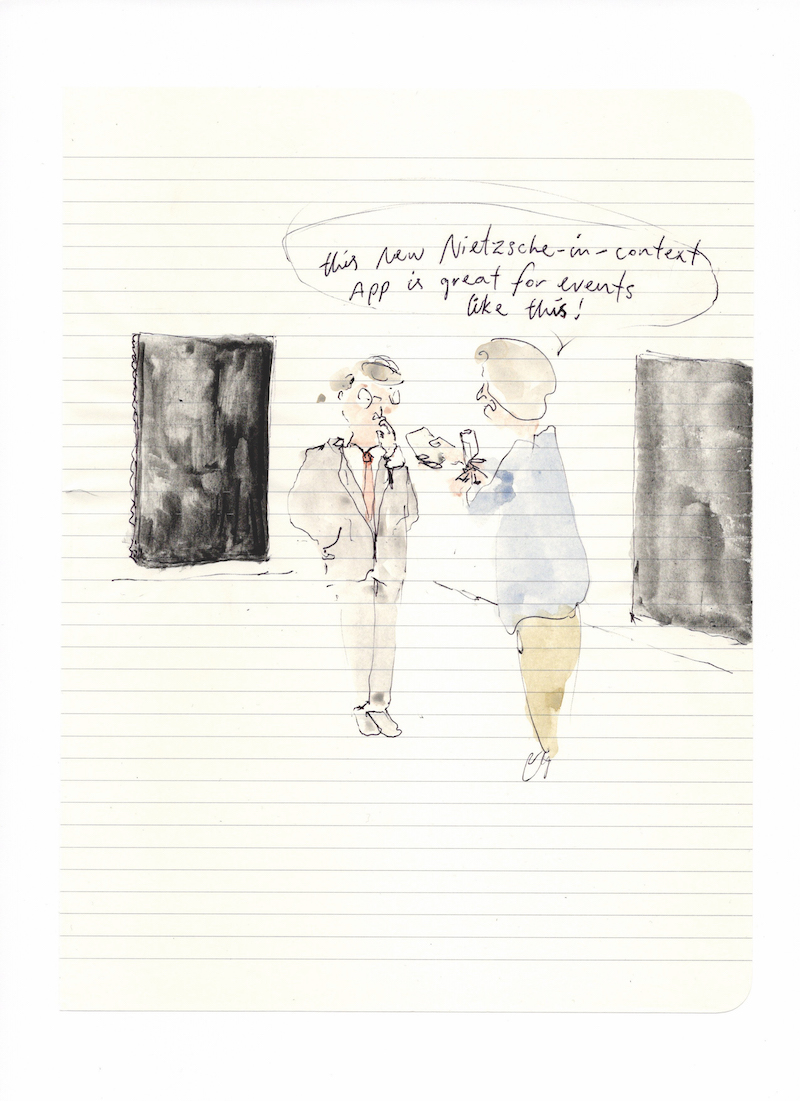 this new Nietzsche-in-context
App is great for events
like this!